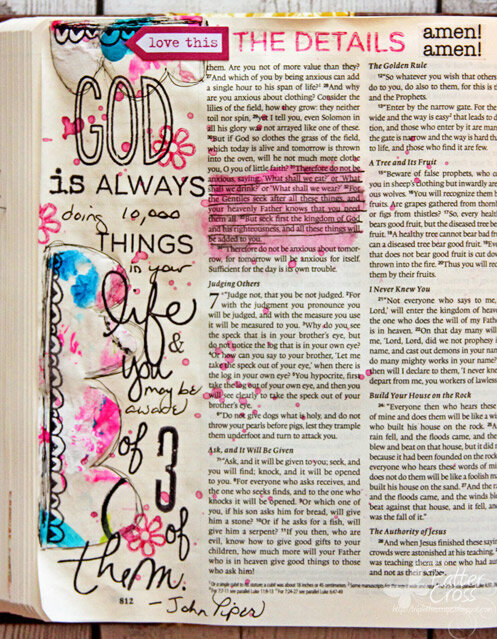 love this
THE DETAILS
amen!
amen!
GOD
is ALWAYS
doing 10,000
THINGS
in your
life
&
you
may be
aware
of
3
of
them.
- John Piper
812
them. Are you not of more value than they?
27And which of you by being anxious can add
a single hour to his span of life? 28And why
are you anxious about clothing? Consider the
lilies of the field, how they grow: they neither
toil nor spin, 29yet I tell you, even Solomon in
all his glory was not arrayed like one of these.
30But if God so clothes the grass of the field,
which today is alive and tomorrow is thrown
into the oven, will he not much more clothe
you, O you of little faith? 31Therefore do not be
anxious, saying, 'What shall we eat?' or 'What
shall we drink?' or 'What shall we wear?' 32For
the Gentiles seek after all these things, and
your heavenly Father knows that you need
them all. 33But seek first the kingdom of God
and his righteousness, and all these things will
be added to you.
34"Therefore do not be anxious about tomor-
row, for tomorrow will be anxious for itself.
Sufficient for the day is its own trouble.
Judging Others
7 "Judge not, that you be not judged. 2For
with the judgment you pronounce you
will be judged, and with the measure you use
it will be measured to you. 3Why do you see
the speck that is in your brother's eye, but
do not notice the log that is in your own eye?
4Or how can you say to your brother, 'Let me
take the speck out of your eye,' when there is
the log in your own eye? 5You hypocrite, first
take the log out of your own eye, and then you
will see clearly to take the speck out of your
brother's eye.
6"Do not give dogs what is holy, and do not
throw your pearls before pigs, lest they trample
them underfoot and turn to attack you.
Ask, and It Will Be Given
7"Ask, and it will be given to you; seek, and
you will find; knock, and it will be opened
to you. 8For everyone who asks receives, and
the one who seeks finds, and to the one who
knocks it will be opened. 9Or which one of
you, if his son asks him for bread, will give
him a stone? 10Or if he asks for a fish, will
give him a serpent? 11If you then, who are
evil, know how to give good gifts to your
children, how much more will your Father
who is in heaven give good things to those
who ask him!
The Golden Rule
12"So whatever you wish that others
do to you, do also to them, for this is
and the Prophets.
13"Enter by the narrow gate. For the
wide and the way is easy that leads to d
tion, and those who enter by it are many
the gate is narrow and the way is hard th
to life, and those who find it are few.
A Tree and Its Fruit
15"Beware of false prophets, who c
you in sheep's clothing but inwardly
ous wolves. 16You will recognize them b
fruits. Are grapes gathered from thornb
or figs from thistles? 17So, every health
bears good fruit, but the diseased tree be
fruit. 18A healthy tree cannot bear bad fr
can a diseased tree bear good fruit. 19Ev
that does not bear good fruit is cut do
thrown into the fire. 20Thus you will rec
them by their fruits.
I Never Knew You
21"Not everyone who says to me,
Lord,' will enter the kingdom of heave
the one who does the will of my Fathe
is in heaven. 22On that day many will
me, 'Lord, Lord, did we not prophesy i
name, and cast out demons in your nam
do many mighty works in your name?'
then will I declare to them, 'I never knew
depart from me, you workers of lawless
Build Your House on the Rock
24"Everyone then who hears these
of mine and does them will be like a wis
who built his house on the rock. 25A
rain fell, and the floods came, and the
blew and beat on that house, but it did n
because it had been founded on the rock
everyone who hears these words of mi
does not do them will be like a foolish ma
built his house on the sand. 27And the r
and the floods came, and the winds ble
beat against that house, and it fell, and
was the fall of it."
The Authority of Jesus
28And when Jesus finished these sayin
crowds were astonished at his teaching,
was teaching them as one who had au
and not as their scribes.
Cross